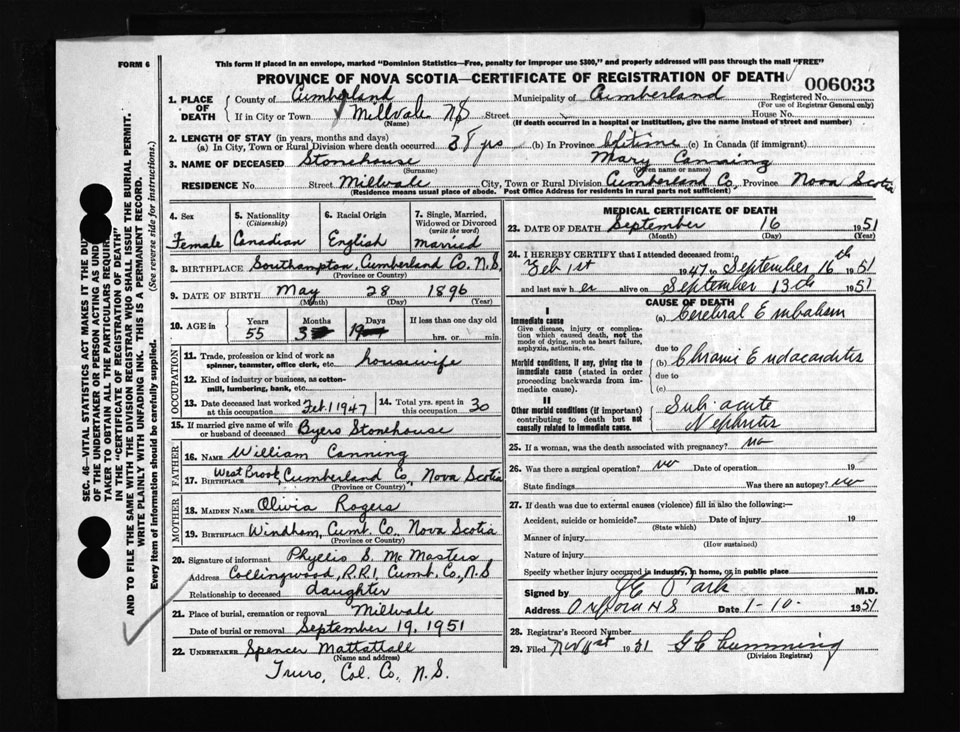 FORM 6
This form if placed in an envelope, marked "Dominion Statistics—Free, penalty for improper use $300," and properly addressed will pass through the mail "FREE"
PROVINCE OF NOVA SCOTIA—CERTIFICATE OF REGISTRATION OF DEATH
006033
1. PLACE OF DEATH
County of Cumberland Municipality of Cumberland Registered No.
(For use of Registrar General only)
If in City or Town Millvale NS Street House No.
(Name) (If death occurred in a hospital or institution, give the name instead of street and number)
2. LENGTH OF STAY (in years, months and days)
(a) In City, Town or Rural Division where death occurred 38 yrs (b) In Province lifetime (c) In Canada (if immigrant)
3. NAME OF DECEASED Stonehouse Mary Canning
(Surname) (Given name or names)
RESIDENCE No. Street Millvale City, Town or Rural Division Cumberland Co, Province Nova Scotia
(Residence means usual place of abode. Post Office Address for residents in rural parts not sufficient)
4. Sex
Female
5. Nationality
(Citizenship)
Canadian
6. Racial Origin
English
7. Single, Married, Widowed or Divorced
(write the word)
Married
8. BIRTHPLACE Southampton, Cumberland Co. N.S.
(Province or Country)
9. DATE OF BIRTH May 28 1896
(Month) (Day) (Year)
10. AGE in
Years Months Days If less than one day old
55 3 19 hrs. or min.
OCCUPATION
11. Trade, profession or kind of work as spinner, teamster, office clerk, etc. housewife
12. Kind of industry or business, as cotton-mill, lumbering, bank, etc.
13. Date deceased last worked at this occupation Feb. 1 1947
14. Total yrs. spent in this occupation 30
15. If married give name of wife or husband of deceased Byers Stonehouse
FATHER
16. NAME William Canning
17. BIRTHPLACE West Brook, Cumberland Co, Nova Scotia
(Province or Country)
MOTHER
18. MAIDEN NAME Olivia Rogers
19. BIRTHPLACE Windham, Cumb. Co., Nova Scotia
(Province or Country)
20. Signature of informant Phyllis S. McMasters
Address Collingwood, R.R.1, Cumb. Co, N.S
Relationship to deceased daughter
21. Place of burial, cremation or removal Millvale
Date of burial or removal September 19, 1951
22. UNDERTAKER Spencer Mattatall
(Name and address)
Truro, Col. Co, N.S.
MEDICAL CERTIFICATE OF DEATH
23. DATE OF DEATH September 16 1951
(Month) (Day) (Year)
24. I HEREBY CERTIFY that I attended deceased from:
Feb 1st 1947 to September 16th 1951
and last saw h er alive on September 13th 1951
CAUSE OF DEATH
I
Immediate cause
Give disease, injury or complication which caused death, not the mode of dying, such as heart failure, asphyxia, asthenia, etc.
(a) Cerebral Embolism
due to
Morbid conditions, if any, giving rise to immediate cause (stated in order proceeding backwards from immediate cause).
(b) Chronic Endocarditis
due to
(c)
II
Other morbid conditions (if important) contributing to death but not causally related to immediate cause.
Sub acute
Nephritis
25. If a woman, was the death associated with pregnancy? no
26. Was there a surgical operation? no Date of operation 19
State findings Was there an autopsy? no
27. If death was due to external causes (violence) fill in also the following:—
Accident, suicide or homicide? Date of injury 19
(State which)
Manner of injury
(How sustained)
Nature of injury
Specify whether injury occurred in industry, in home, or in public place
Signed by Park M.D.
Address Oxford N S Date 1-10- 1951
28. Registrar's Record Number
29. Filed 1951 G C Cumming
(Division Registrar)
SEC. 46—VITAL STATISTICS ACT MAKES IT THE DU
OF THE UNDERTAKER OR PERSON ACTING AS UND
TAKER TO OBTAIN ALL THE PARTICULARS REQUIRE
IN THE "CERTIFICATE OF REGISTRATION OF DEATH"
AND TO FILE THE SAME WITH THE DIVISION REGISTRAR WHO SHALL ISSUE THE BURIAL PERMIT.
WRITE PLAINLY WITH UNFADING INK. THIS IS A PERMANENT RECORD.
Every item of information should be carefully supplied. (See reverse side for instructions.)